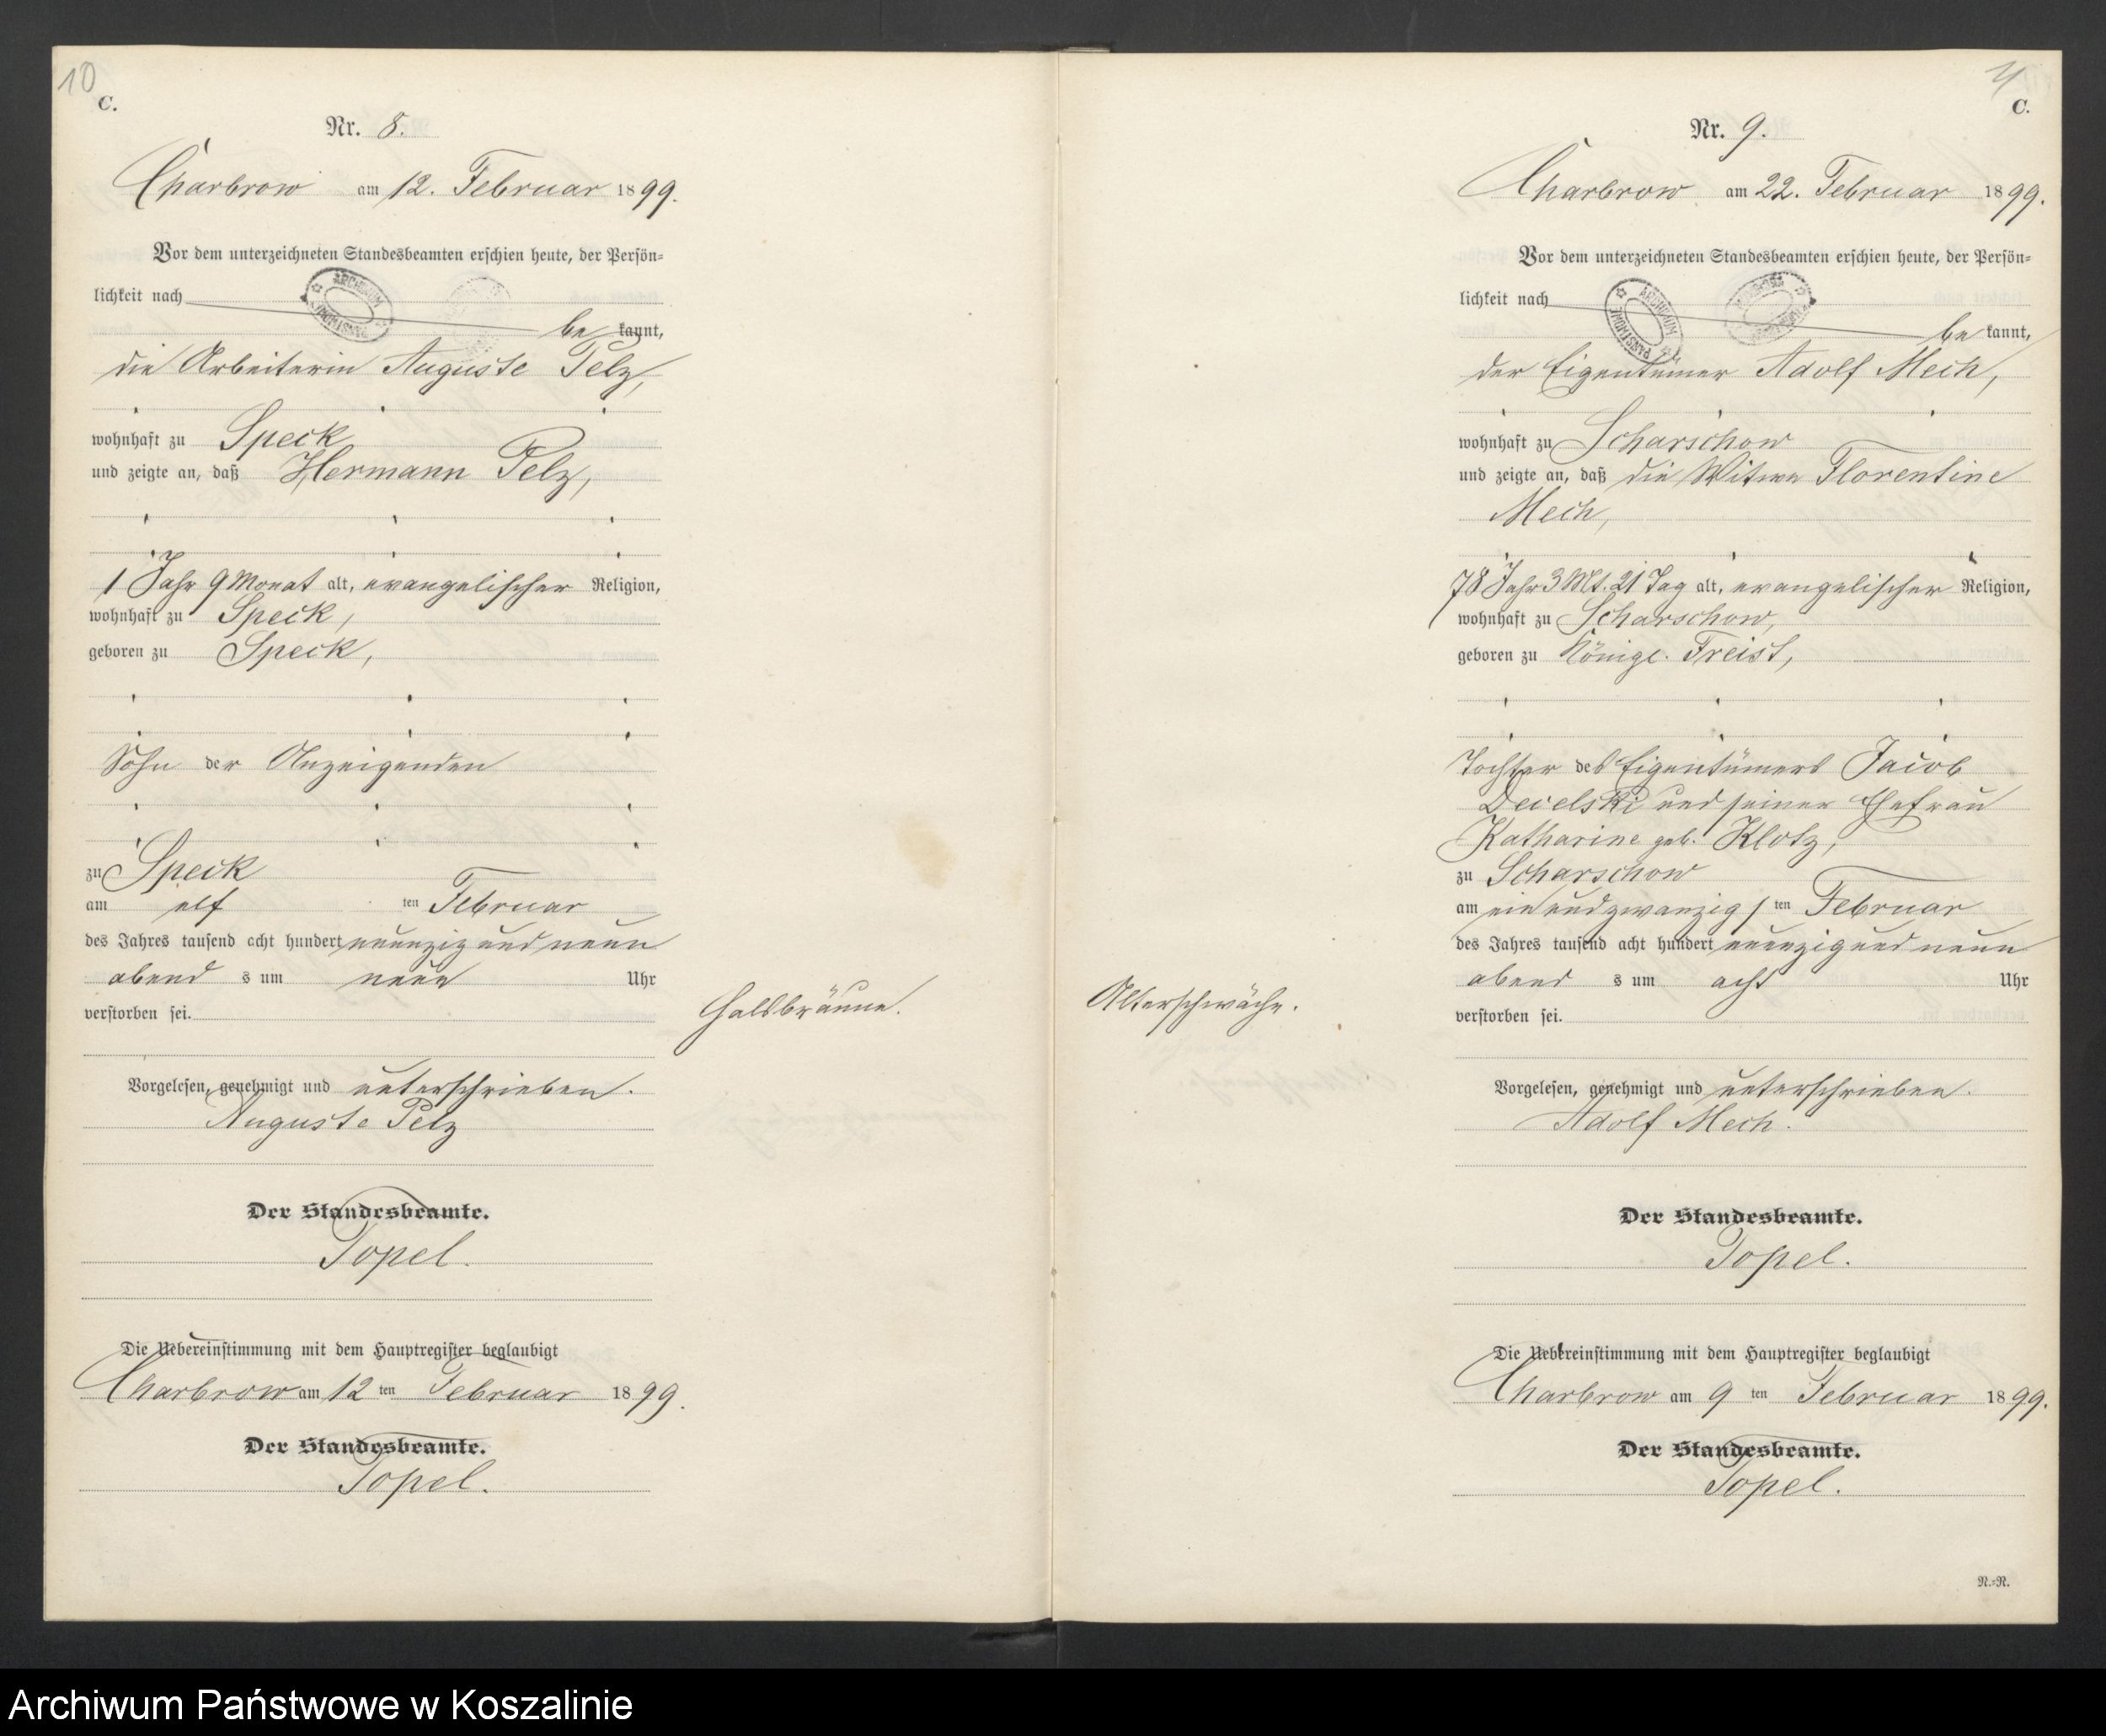 10
C.
Nr. 8.
Charbrow am 12. Februar 1899.
Vor dem unterzeichneten Standesbeamten erschien heute, der Persön-
lichkeit nach
be kannt,
die Arbeiterin Auguste Pelz,
wohnhaft zu Speck
und zeigte an, daß Hermann Pelz,
1 Jahr 9 Monat alt, evangelischer Religion,
wohnhaft zu Speck,
geboren zu Speck,
Sohn der Anzeigenden
zu Speck
am elf ten Februar
des Jahres tausend acht hundert neunzig und neun
abend s um neun Uhr
verstorben sei.
Halsbräune.
Vorgelesen, genehmigt und unterschrieben.
Auguste Pelz
Der Standesbeamte.
Topel.
Die Uebereinstimmung mit dem Hauptregister beglaubigt
Charbrow am 12 ten Februar 1899.
Der Standesbeamte.
Topel.
C.
Nr. 9.
Charbrow am 22. Februar 1899.
Vor dem unterzeichneten Standesbeamten erschien heute, der Persön-
lichkeit nach
be kannt,
der Eigentümer Adolf Mech,
wohnhaft zu Scharschow
und zeigte an, daß die Witwe Florentine
Mech,
78 Jahr 3 Mt. 21 Tag alt, evangelischer Religion,
wohnhaft zu Scharschow,
geboren zu Königl. Freist,
Tochter des Eigentümers Jacob
Decelski und seiner Ehefrau
Katharine geb. Klotz,
zu Scharschow
am ein und zwanzig ten Februar
des Jahres tausend acht hundert neunzig und neun
abend s um acht Uhr
verstorben sei.
Alterschwäche.
Vorgelesen, genehmigt und unterschrieben.
Adolf Mech.
Der Standesbeamte.
Topel.
Die Uebereinstimmung mit dem Hauptregister beglaubigt
Charbrow am 9 ten Februar 1899.
Der Standesbeamte.
Topel.
N.-N.
Archiwum Państwowe w Koszalinie